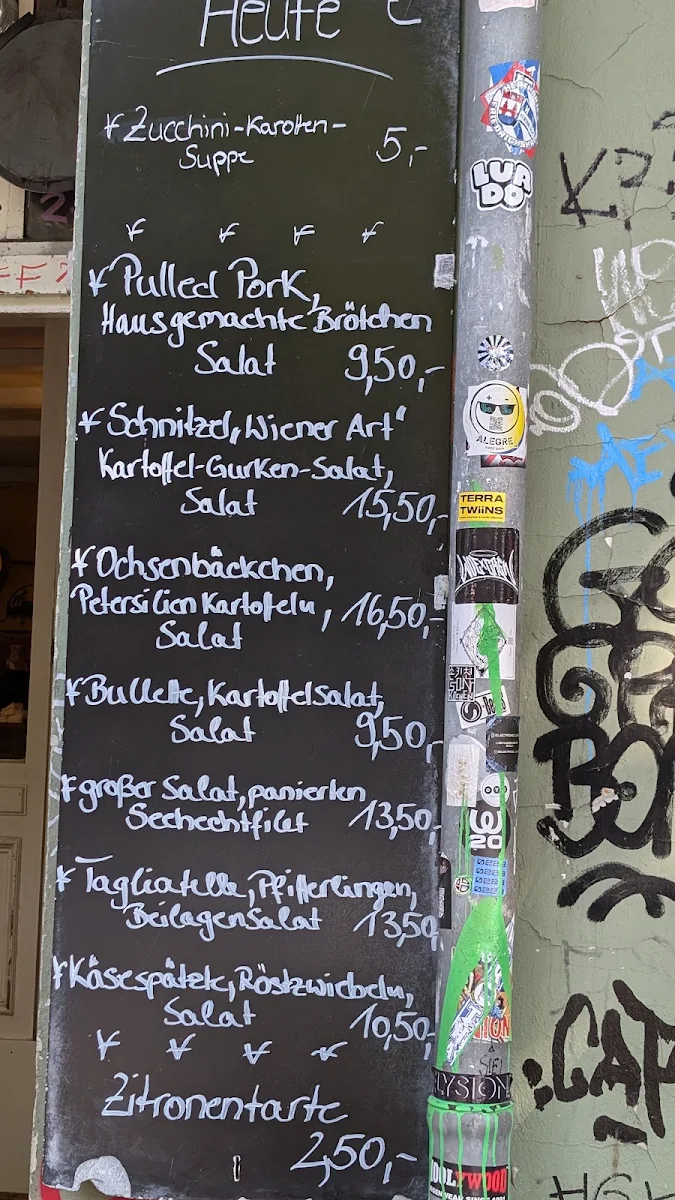 Heute €
* Zucchini-Karotten-
Suppe 5,-
* Pulled Pork,
Hausgemachte Brötchen
Salat 9,50,-
* Schnitzel „Wiener Art"
Kartoffel-Gurken-Salat,
Salat 15,50,-
* Ochsenbäckchen,
Petersilien Kartoffeln, 16,50,-
Salat
* Bullette, Kartoffelsalat,
Salat 9,50,-
* großer Salat, panierten
Seehechtfilet 13,50,-
* Tagliatelle, Pfifferlingen,
Beilagensalat 13,50,-
* Käsespätzle, Röstzwiebeln,
Salat 10,50,-
Zitronentarte
2,50,-
LUA
DO
ALEGRE
TERRA
TWiiNS
W
20
ELYSION